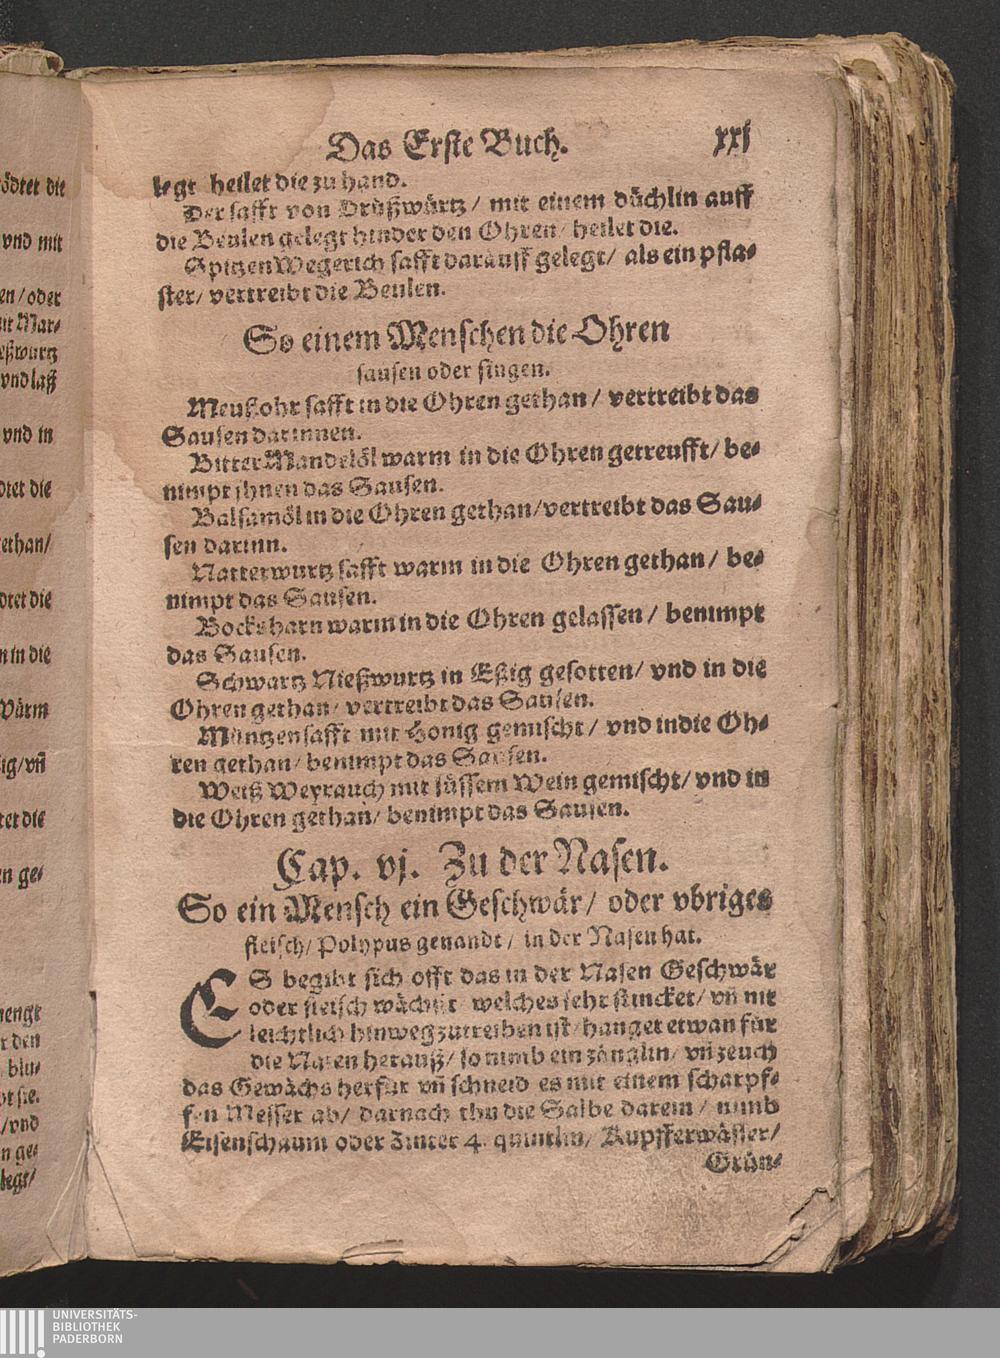 Das Erste Buch. xxj
legt heilet die zu hand.
Der safft von Drüßwürtz / mit einem düchlin auff
die Beulen gelegt hinder den Ohren / heilet die.
Spitzen Wegerich safft darauff gelegt / als ein pfla-
ster / vertreibt die Beulen.
So einem Menschen die Ohren
sausen oder singen.
Meußohr safft in die Ohren gethan / vertreibt das
Sausen darinnen.
Bitter Mandelöl warm in die Ohren getreufft / be-
nimpt jhnen das Sausen.
Balsamöl in die Ohren gethan / vertreibt das Sau-
sen darinn.
Natterwurtz safft warm in die Ohren gethan / be-
nimpt das Sausen.
Bocksharn warm in die Ohren gelassen / benimpt
das Sausen.
Schwartz Nießwurtz in Eßig gesotten / vnd in die
Ohren gethan / vertreibt das Sausen.
Müntzensafft mit Honig gemischt / vnd in die Oh-
ren gethan / benimpt das Sausen.
Weiß Weyrauch mit süssem Wein gemischt / vnd in
die Ohren gethan / benimpt das Sausen.
Cap. vj. Zu der Nasen.
So ein Mensch ein Geschwär / oder vbriges
fleisch / Polypus genandt / in der Nasen hat.
ES begibt sich offt das in der Nasen Geschwär
oder fleisch wächst welches sehr stincket / vñ nit
leichtlich hinweg zutreiben ist / hanget etwan für
die Nasen herauß / so nimb ein zänglin / vñ zeuch
das Gewächs herfür vñ schneid es mit einem scharpf-
fen Messer ab / darnach thu die Salbe darein / nimb
Eisenschaum oder Zinter 4. quintlin / Kupfferwasser /
Grün-
ödtet die
vnd mit
en / oder
it Mar-
eßwurtz
vnd laß
vnd in
dtet die
ethan /
dtet die
n in die
Wärm
ig / vñ
tet die
n ge-
mengt
r den
blu-
bt sie.
/ vnd
n ge-
legt /
UNIVERSITÄTS-
BIBLIOTHEK
PADERBORN